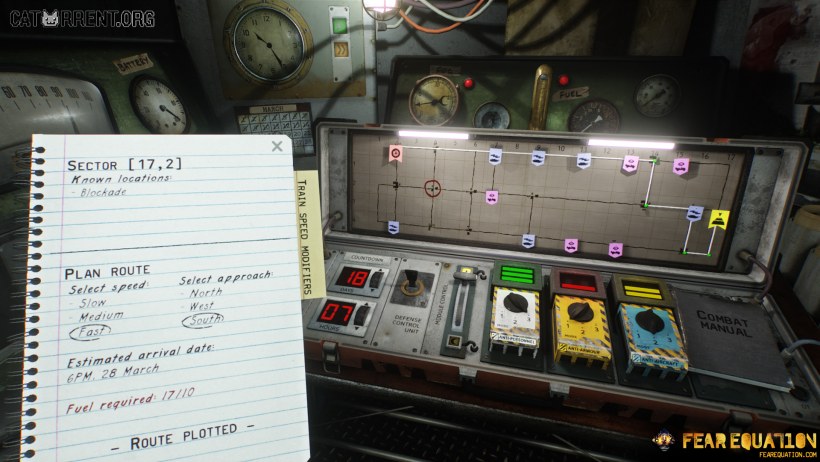 CATORRENT.ORG
BATTERY
MARCH
FUEL
SECTOR [17,2]
Known locations:
- Blockade
TRAIN SPEED MODIFIERS
PLAN ROUTE
Select speed:
- Slow
- Medium
- Fast
Select approach:
- North
- West
- South
Estimated arrival date:
6PM, 28 March
Fuel required: 17/10
- ROUTE PLOTTED -
COUNTDOWN
18
DAYS
07
HOURS
DEFENSE
CONTROL
UNIT
MODULE CONTROL
ANTI-PERSONNEL
ANTI-ARMOUR
ANTI-AIRCRAFT
COMBAT
MANUAL
FEAR EQUATION
FEAREQUATION.COM